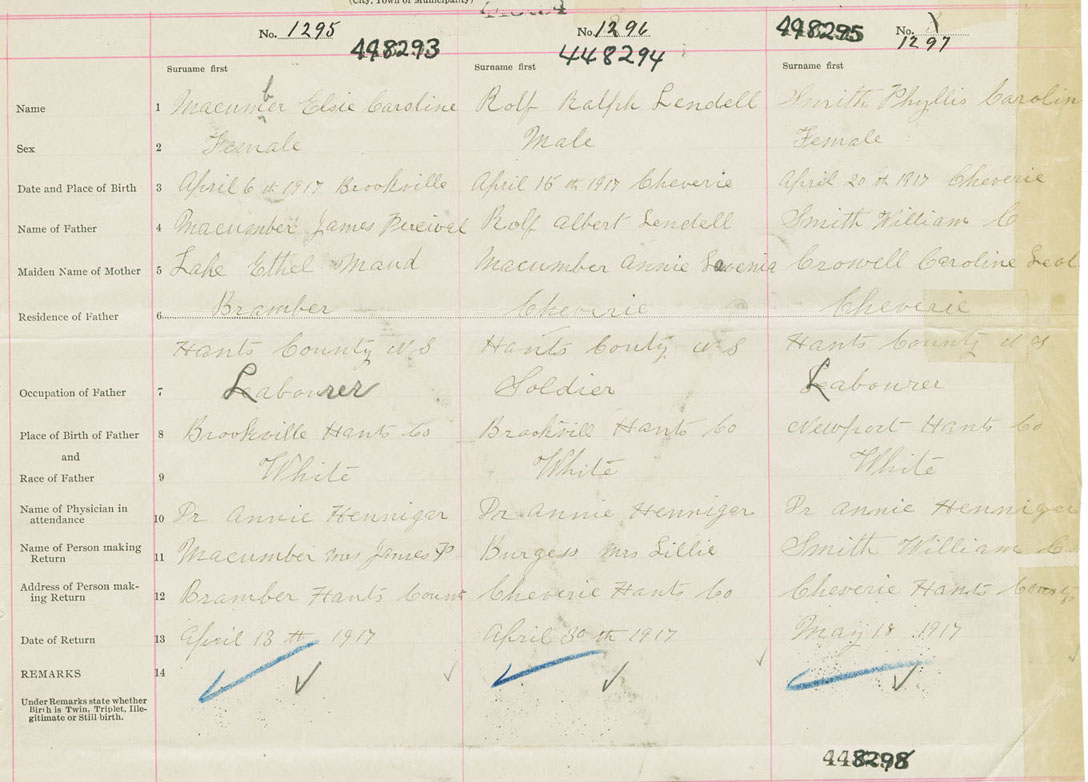 (City, Town or Municipality)
No. 1295 No. 1296 448295 No. 1297
448293 448294
Surname first Surname first Surname first
Name 1 Macumber Elsie Caroline Rolf Ralph Lendell Smith Phyllis Carolin
Sex 2 Female Male Female
Date and Place of Birth 3 April 6th 1917 Brookville April 15th 1917 Cheverie April 20th 1917 Cheverie
Name of Father 4 Macumber James Percival Rolf Albert Lendell Smith William C
Maiden Name of Mother 5 Lake Ethel Maud Macumber Annie Crowell Caroline
Residence of Father 6 Bramber Cheverie Cheverie
Hants County N S Hants Couty N S Hants County N S
Occupation of Father 7 Labourer Soldier Labourer
Place of Birth of Father 8 Brookville Hants Co Brookvill Hants Co Newport Hants Co
and
Race of Father 9 White White White
Name of Physician in
attendance 10 Dr Annie Hennigar Dr Annie Hennigar Dr Annie Hennigar
Name of Person making
Return 11 Macumber Mrs James P Burgess Mrs Lillie Smith William C
Address of Person mak-
ing Return 12 Bramber Hants Count Cheverie Hants Co Cheverie Hants County
Date of Return 13 April 13th 1917 April 30th 1917 May 18 1917
REMARKS 14
Under Remarks state whether
Birth is Twin, Triplet, Ille-
gitimate or Still-birth.
448298